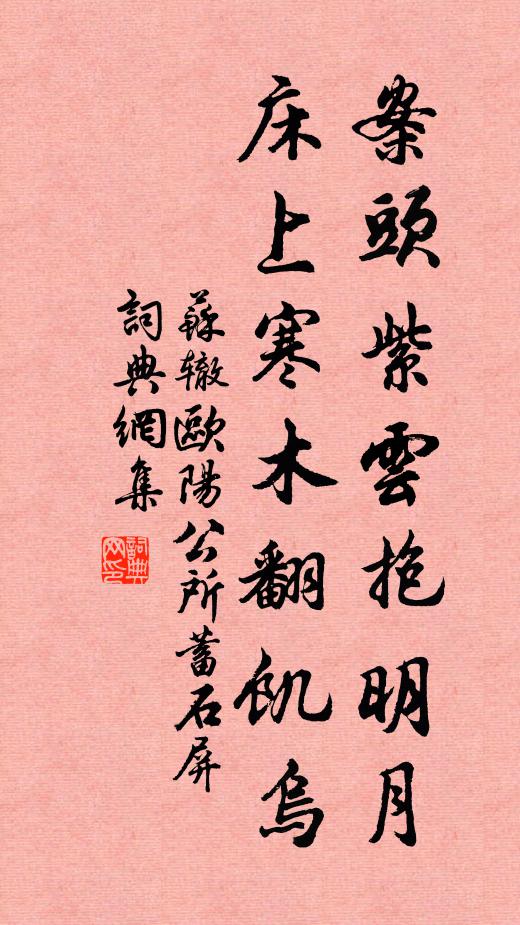 案頭紫雲抱明月
床上寒木翻飢烏
蘇辙歐陽公所蓄石屏
詞典網集
詞典
网印